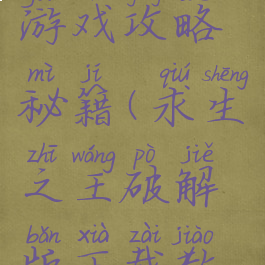 游戏攻略
mì jí qiú shēng
秘籍(求生
zhī wáng pò jiě
之王破解
bǎn xià zài jiào
版下载教